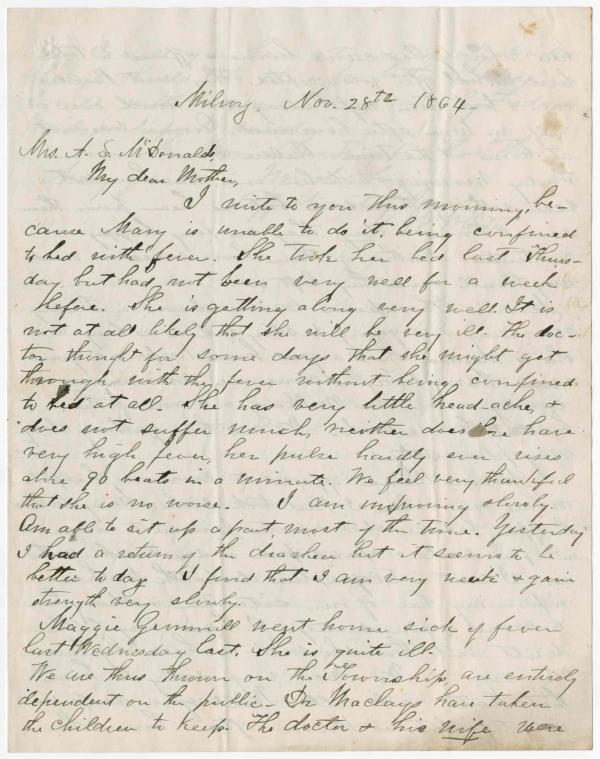 Milroy, Nov. 28th 1864.
Mrs. A. E. McDonald,
My dear Mother,
I write to you this morning, be-
cause Mary is unable to do it, being confined
to bed with fever. She took her bed last Thurs-
day, but had not been very well for a week
before. She is getting along very well. It is
not at all likely that she will be very ill. The doc-
tor thought for some days that she might get
through with the fever without being confined
to bed at all. She has very little head-ache, &
does not suffer much, neither does she have
very high fever, her pulse hardly ever rises
above 90 beats in a minute. We feel very thankful
that she is no worse. I am improving slowly.
Am able to sit up a part, most of the time. Yesterday
I had a return of the diarrhea but it seems to be
better to day. I find that I am very weak & gain
strength very slowly.
Maggie Gemmill went home sick of fever
last Wednesday last. She is quite ill.
We are thus thrown on the Township, we are entirely
dependent on the public - Dr Maclays have taken
the children to keep. The doctor & his wife were